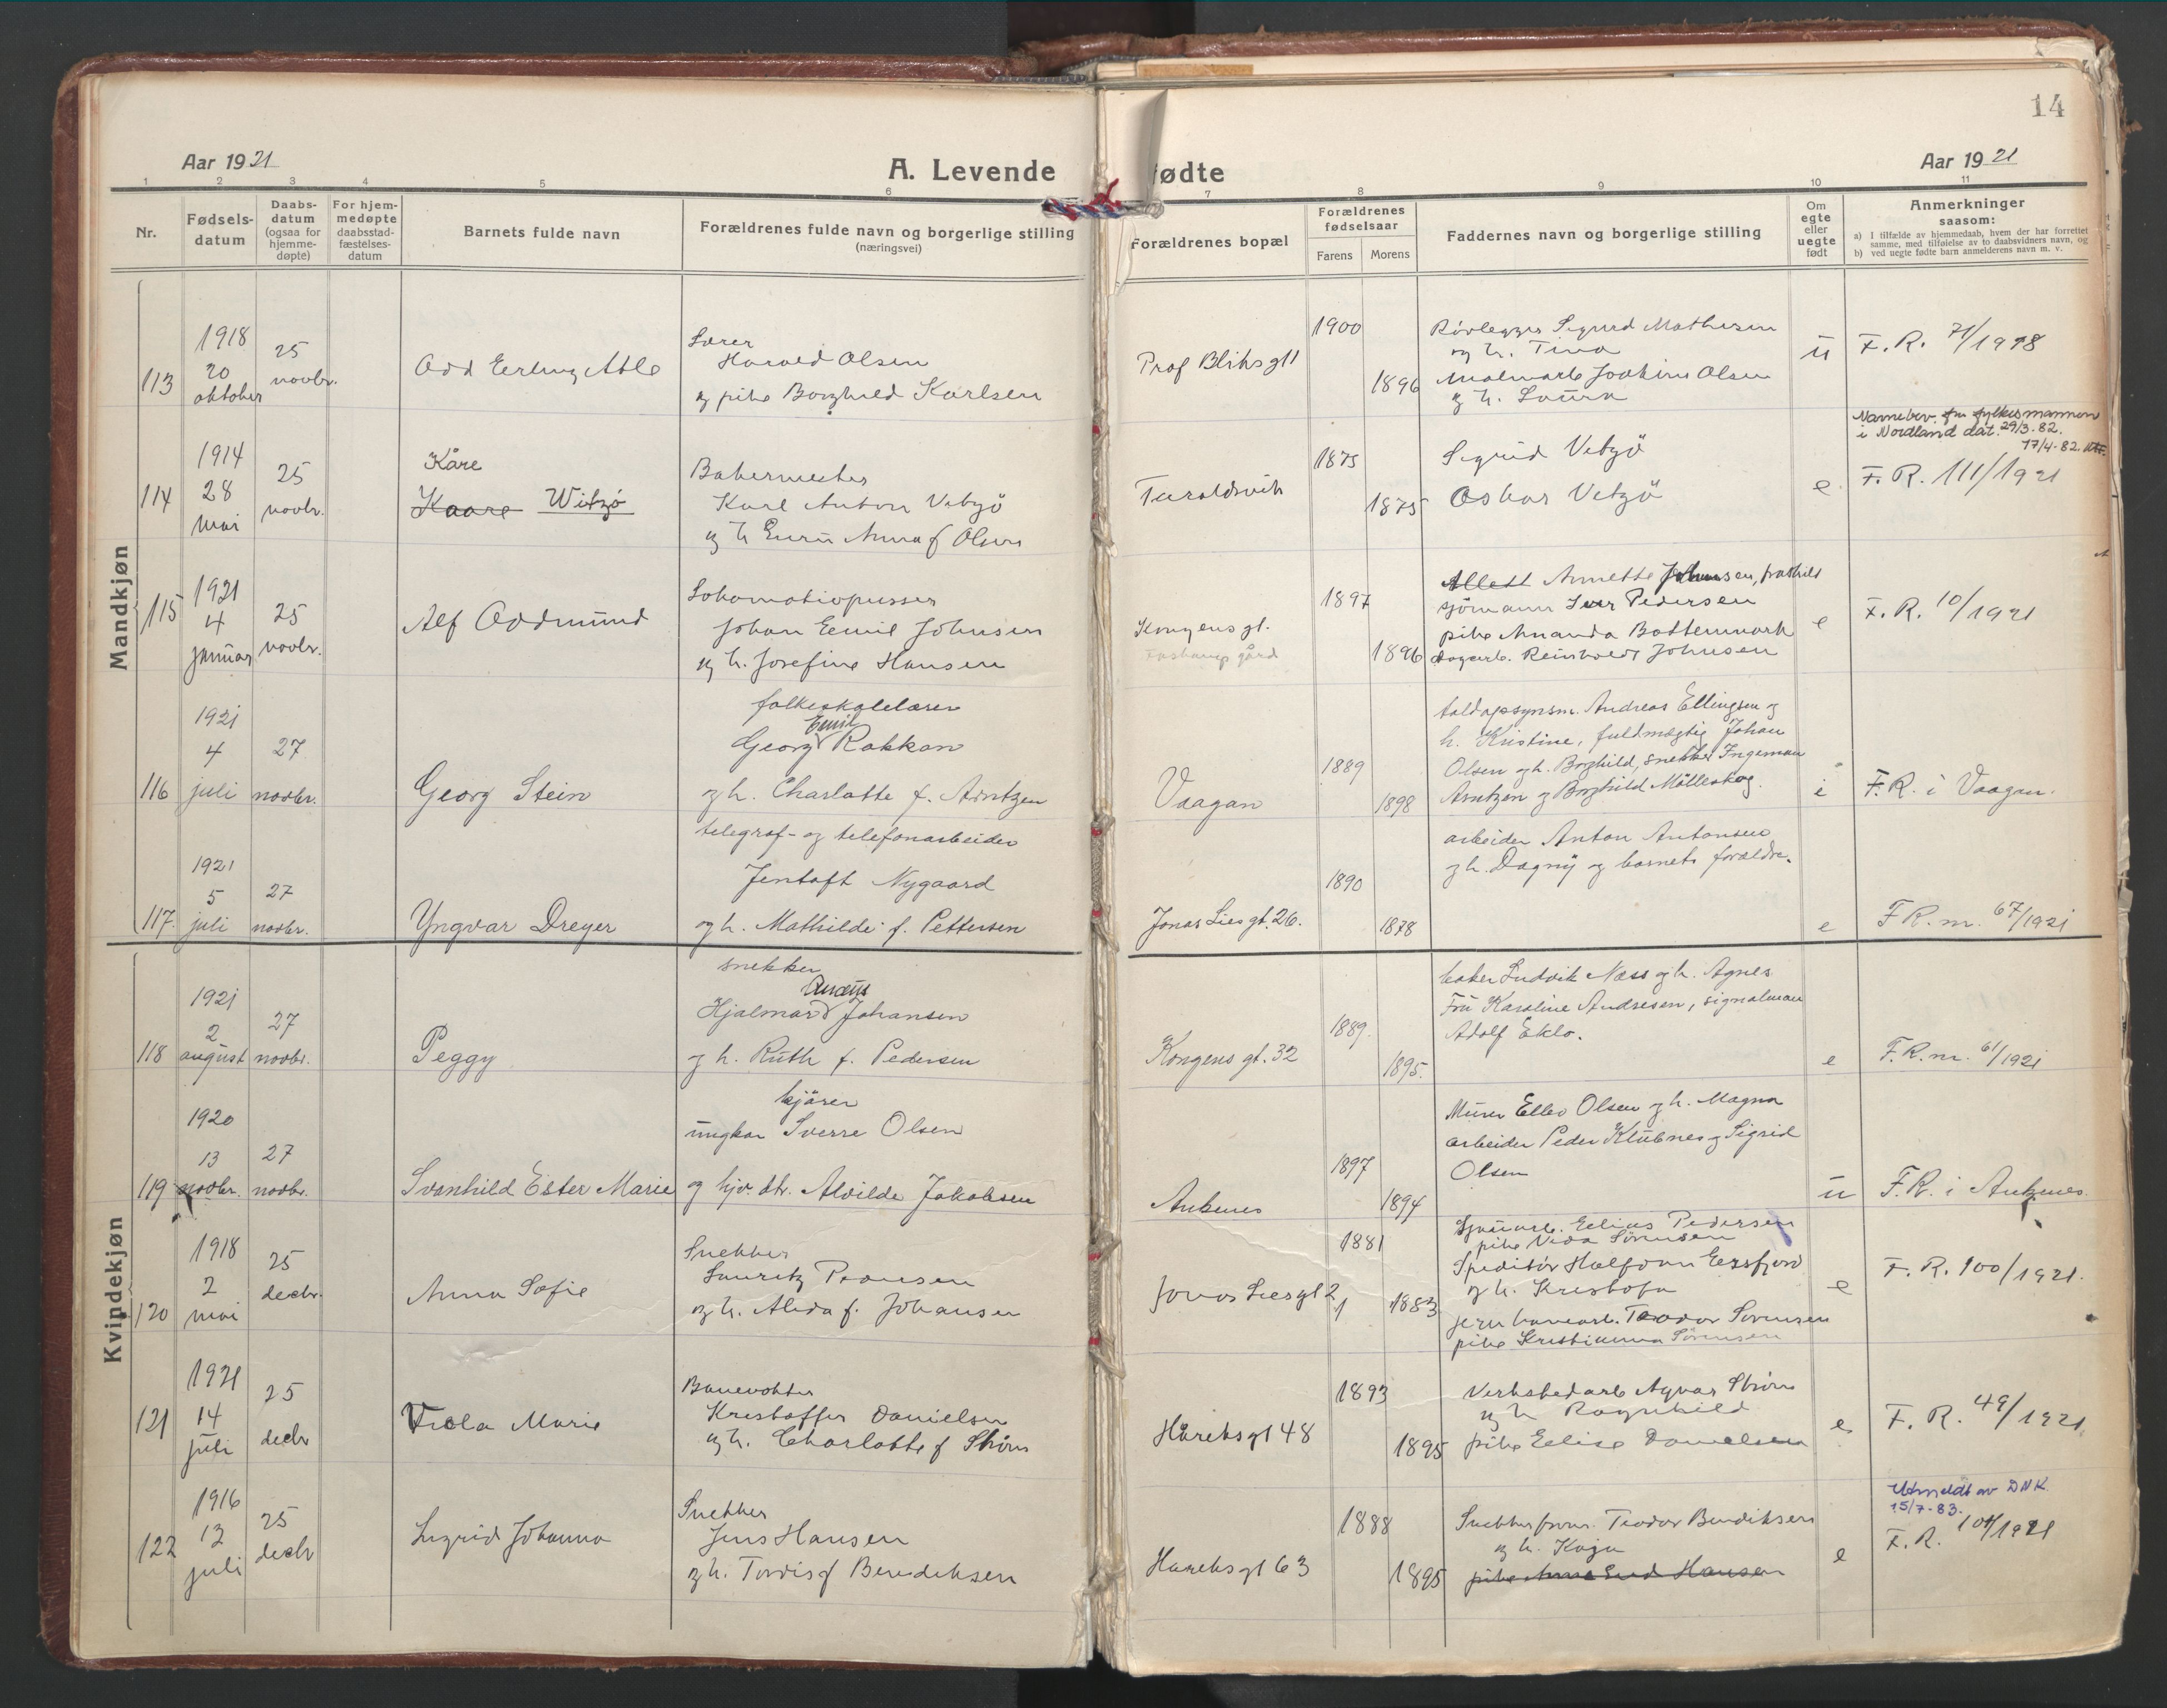 14
Aar 1921
A. Levende
fødte
Aar 1921
1 2 3 4 5 6 7 8 9 10 11
Nr.
Fødsels-
datum
Daabs-
datum
(ogsaa for
hjemme-
døpte)
For hjem-
medøpte
daabsstad-
fæstelses-
datum
Barnets fulde navn
Forældrenes fulde navn og borgerlige stilling
(næringsvei)
Forældrenes bopæl
Forældrenes
fødselsaar
Farens
Morens
Faddernes navn og borgerlige stilling
Om
egte
eller
uegte
født
Anmerkninger
saasom:
a) I tilfælde av hjemmedaab, hvem der har forrettet
samme, med tilføielse av to daabsvidners navn, og
b) ved uegte fødte barn anmelderens navn m. v.
Mandkjøn
113
1918
20
oktober
25
novbr.
Odd Erling Atle
Harald Olsen
og pike Borghild Karlsen
Prof Bliksgt 1
1900
1896
Rørlegger Sigurd Mathisen
og h. Tina
Malmarb Joakim Olsen
og h. Laura
u
F. R. 71/1918
114
1914
28
mai
25
novbr.
Kåre
Kaare Witzø
Bakermester
Karl Anton Vetzö
og h f Olsen
Taraldsvik
1875
1875
Sigrid Vetzö
Oskar Vetzö
e
Navnebev. fra fylkesmannen
i Nordland dat. 29/3-82.
17/4-82.
F. R. 111/1921
115
1921
4
januar
25
novbr.
Alf Oddmund
Lokomotivpusser
Johan Emil Johnsen
og h. Josefine Hansen
Kongens gt.
gård
1897
1896
Annette Johnsen,
sjömann Iver Pedersen
pike Amanda Bottenmark
Reinholdt Johnsen
e
F. R. 10/1921
116
1921
4
juli
27
novbr.
Georg Stein
folkeskolelærer
Emil
Georg Rakkan
og h. Charlotte f. Arntzen
Vaagan
1889
1898
toldopsynsm. Andreas Ellingsen og
h. Kristine, fuldmægtig Johan
Olsen og h. Borghild, snekker Ingeman
Arntzen og Borghild Mölleskog.
i
F. R. i Vaagan.
117.
1921
5
juli
27
novbr.
Yngvar Dreyer
telegraf- og telefonarbeider
Jentoft Nygaard
og h. Mathilde f. Pettersen
Jonas Liesgt. 26.
1890
1878
arbeider Anton Antonsen
og h. Dagny og barnets forældre.
e
F R. nr. 67/1921
Kvindekjøn
118
1921
2
august
27
novbr.
Peggy
snekker
Hjalmar Johansen
og h. Ruth f. Pedersen
Kongens gt. 32
1889.
1895.
baker Ludvik Næss og h. Agnes
Fru Karoline Andresen, signalman
Adolf Eklo.
e
F. R. nr. 61/1921
119
1920
13
novbr.
27
novbr.
Svanhild Ester Marie
kjörer
ungkar Sverre Olsen
og hjv. dtr. Alvilde Jakobsen
Ankenes
1897
1894
Murer Ellev Olsen og h. Magna
arbeider Peder Klubnes og Sigrid
Olsen
u
F. R. i Ankenes.
120
1918
2
mai
25
decbr.
Anna Sofie
Snekker
Lauritz
og h. Alida f. Johansen
Jonas Liesgt 21
1881
1883
Elias Pedersen
pike Sörensen
Speditör Halfdan Eersfjord
og h. Kristofa
jernbanearb. Teodor Sörensen
pike Kristianna Sörensen
e
F. R. 100/1921.
121
1921
14
juli
25
decbr
Viola Marie
Banevokter
Kristoffer Danielsen
og h. Charlotte f Ström
Håreksgt 48
1893
1895
Verkstedarb Agvar Ström
og h Ragnhild
pike Elise Danielsen
e
F. R. 49/1921.
122
1916
13
juli
25
decbr
Ingrid Johanna
Snekker
Jens Hansen
og h. Tordis f Bendiksen
Hareksgt 63
1888
1895
Teodor Bendiksen
og h. Kaja
pike Hansen
e
Utmeldt av DNK
15/7-83.
F. R. 101/1921